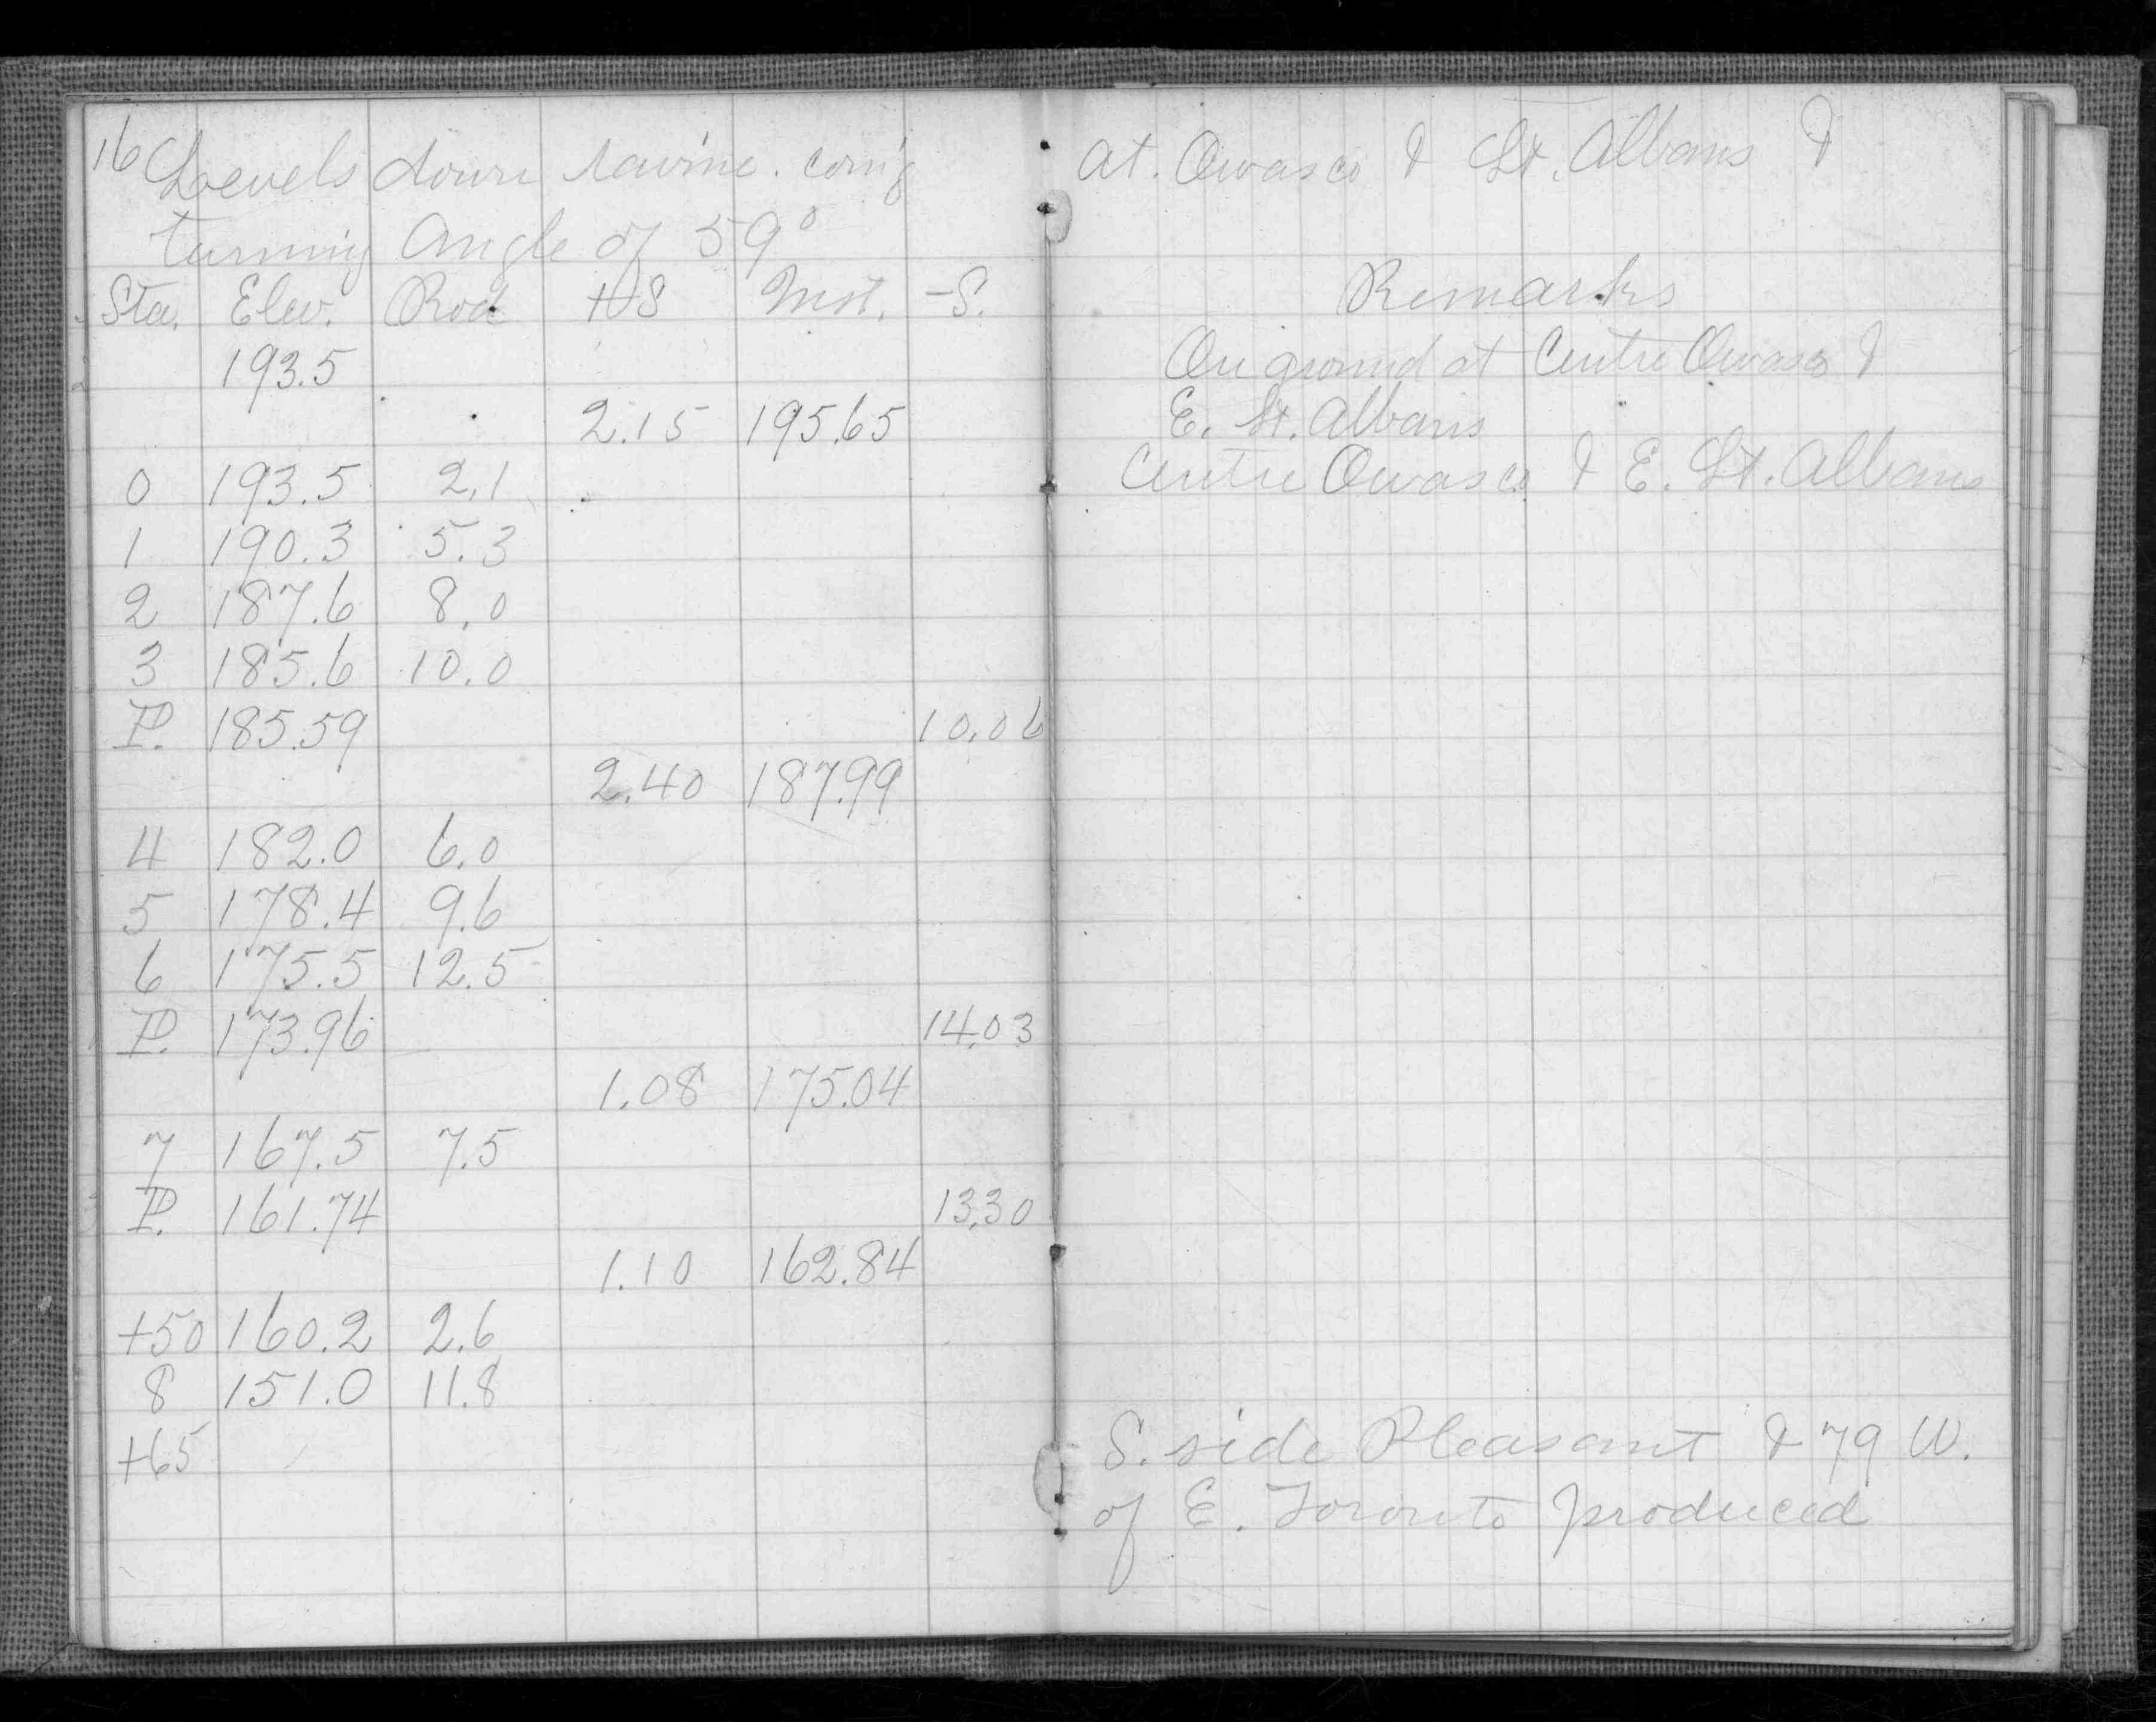 16 Levels down ravine. com'g at. Owasco & St. Albans &
turning Angle of 59°
Sta. Elev. Rod +S Inst. -S. Remarks
193.5 On ground at Centre Owasco &
2.15 195.65 E. St. Albans
0 193.5 2.1 Centre Owasco & E. St. Albans
1 190.3 5.3
2 187.6 8.0
3 185.6 10.0
P. 185.59 10.06
2.40 187.99
4 182.0 6.0
5 178.4 9.6
6 175.5 12.5
P. 173.96 14.03
1.08 175.04
7 167.5 7.5
P. 161.74 13.30
1.10 162.84
+50 160.2 2.6
8 151.0 11.8
+65 S. side Pleasant & 79 W.
of E. Toronto produced